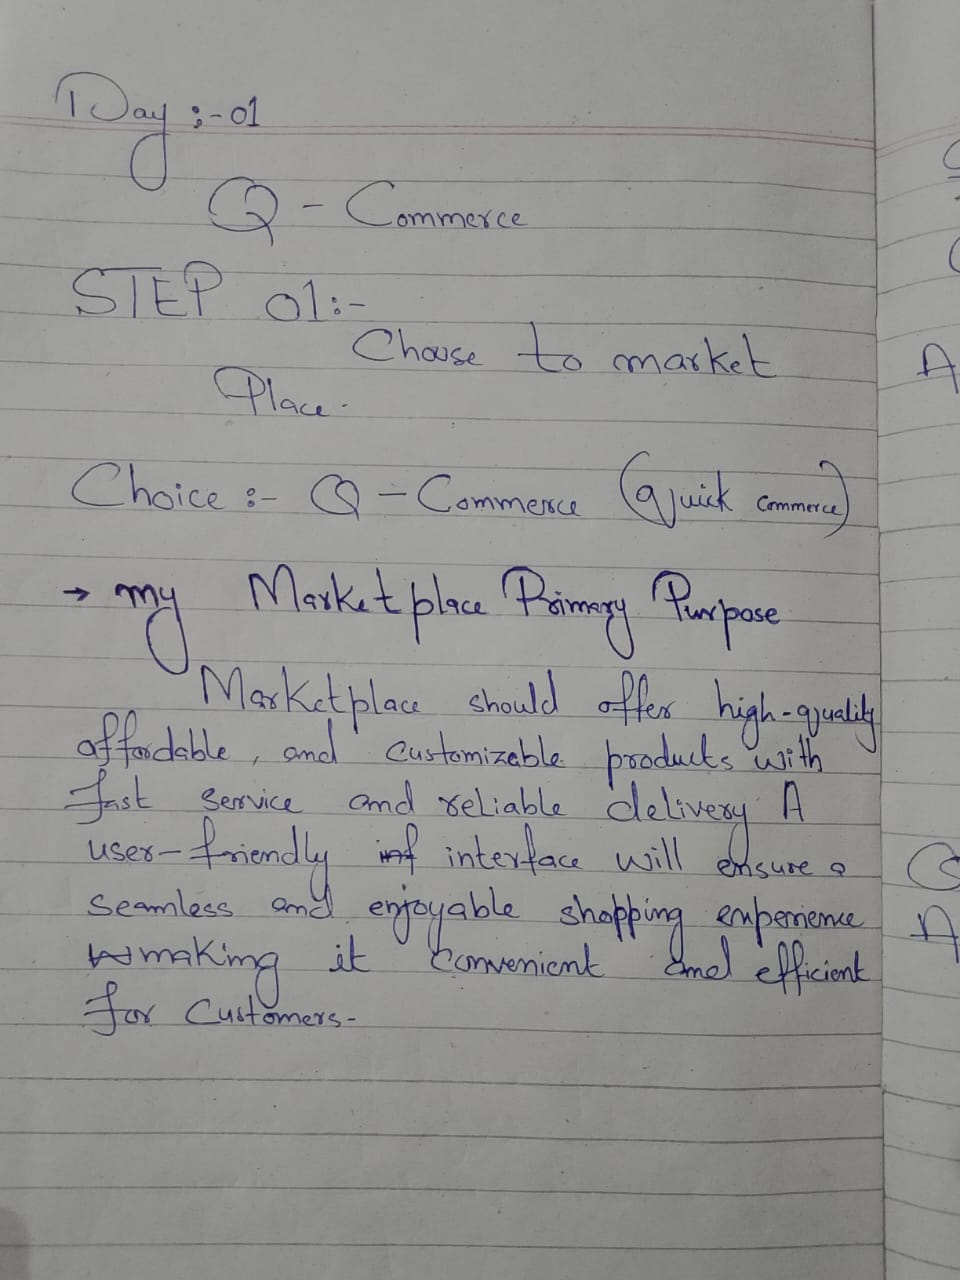 Day :- 01
Q - Commerce
STEP 01:-
Choose to market
Place.
Choice :- Q - Commerce (Quick Commerce)
→ my Marketplace Primary Purpose
Marketplace should offer high-quality
affordable, and customizable products with
fast service and reliable delivery A
user-friendly interface will ensure a
seamless and enjoyable shopping experience
making it convenient and efficient
for Customers-
A
A